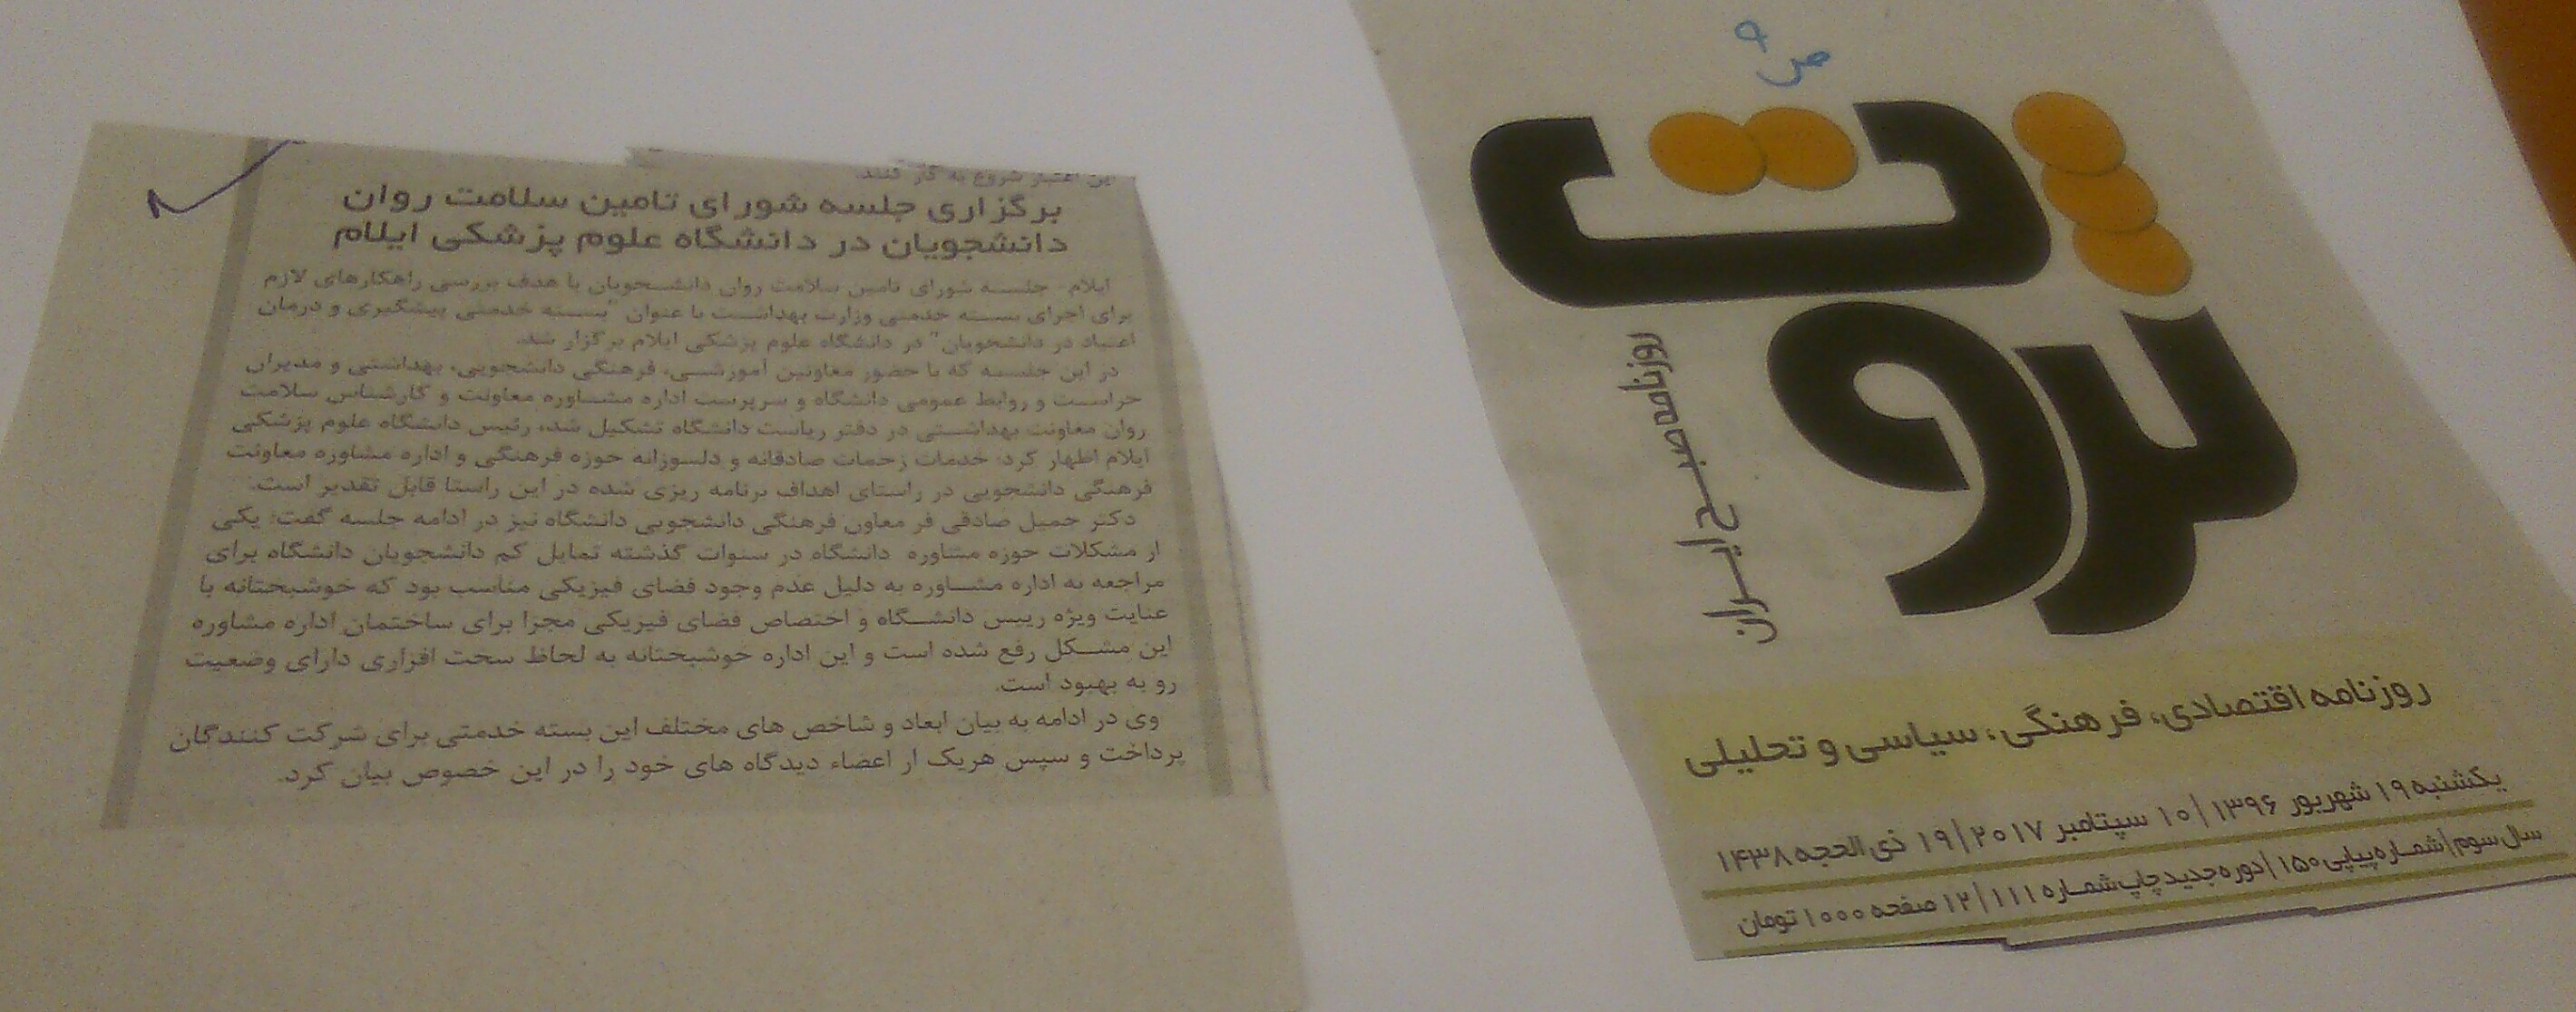 ص ۹
ثروت
روزنامه صبح ایران
روزنامه اقتصادی، فرهنگی، سیاسی و تحلیلی
یکشنبه ۱۹ شهریور ۱۳۹۶ | ۱۰ سپتامبر ۲۰۱۷ | ۱۹ ذی الحجه ۱۴۳۸
سال سوم | شماره پیاپی ۱۵۰ | دوره جدید چاپ شماره ۱۱۱ | ۱۲ صفحه ۱۰۰۰ تومان
این اعتبار شروع به کار کنند.
برگزاری جلسه شورای تامین سلامت روان
دانشجویان در دانشگاه علوم پزشکی ایلام
ایلام- جلسه شورای تامین سلامت روان دانشجویان با هدف بررسی راهکارهای لازم
برای اجرای بسته خدمتی وزارت بهداشت با عنوان "بسته خدمتی پیشگیری و درمان
اعتیاد در دانشجویان" در دانشگاه علوم پزشکی ایلام برگزار شد.
در این جلسه که با حضور معاونین آموزشی، فرهنگی دانشجویی، بهداشتی و مدیران
حراست و روابط عمومی دانشگاه و سرپرست اداره مشاوره معاونت و کارشناس سلامت
روان معاونت بهداشتی در دفتر ریاست دانشگاه تشکیل شد، رئیس دانشگاه علوم پزشکی
ایلام اظهار کرد: خدمات زحمات صادقانه و دلسوزانه حوزه فرهنگی و اداره مشاوره معاونت
فرهنگی دانشجویی در راستای اهداف برنامه ریزی شده در این راستا قابل تقدیر است.
دکتر جمیل صادقی فر معاون فرهنگی دانشجویی دانشگاه نیز در ادامه جلسه گفت: یکی
از مشکلات حوزه مشاوره دانشگاه در سنوات گذشته تمایل کم دانشجویان دانشگاه برای
مراجعه به اداره مشاوره به دلیل عدم وجود فضای فیزیکی مناسب بود که خوشبختانه با
عنایت ویژه رییس دانشگاه و اختصاص فضای فیزیکی مجزا برای ساختمان اداره مشاوره
این مشکل رفع شده است و این اداره خوشبختانه به لحاظ سخت افزاری دارای وضعیت
رو به بهبود است.
وی در ادامه به بیان ابعاد و شاخص های مختلف این بسته خدمتی برای شرکت کنندگان
پرداخت و سپس هریک از اعضاء دیدگاه های خود را در این خصوص بیان کرد.